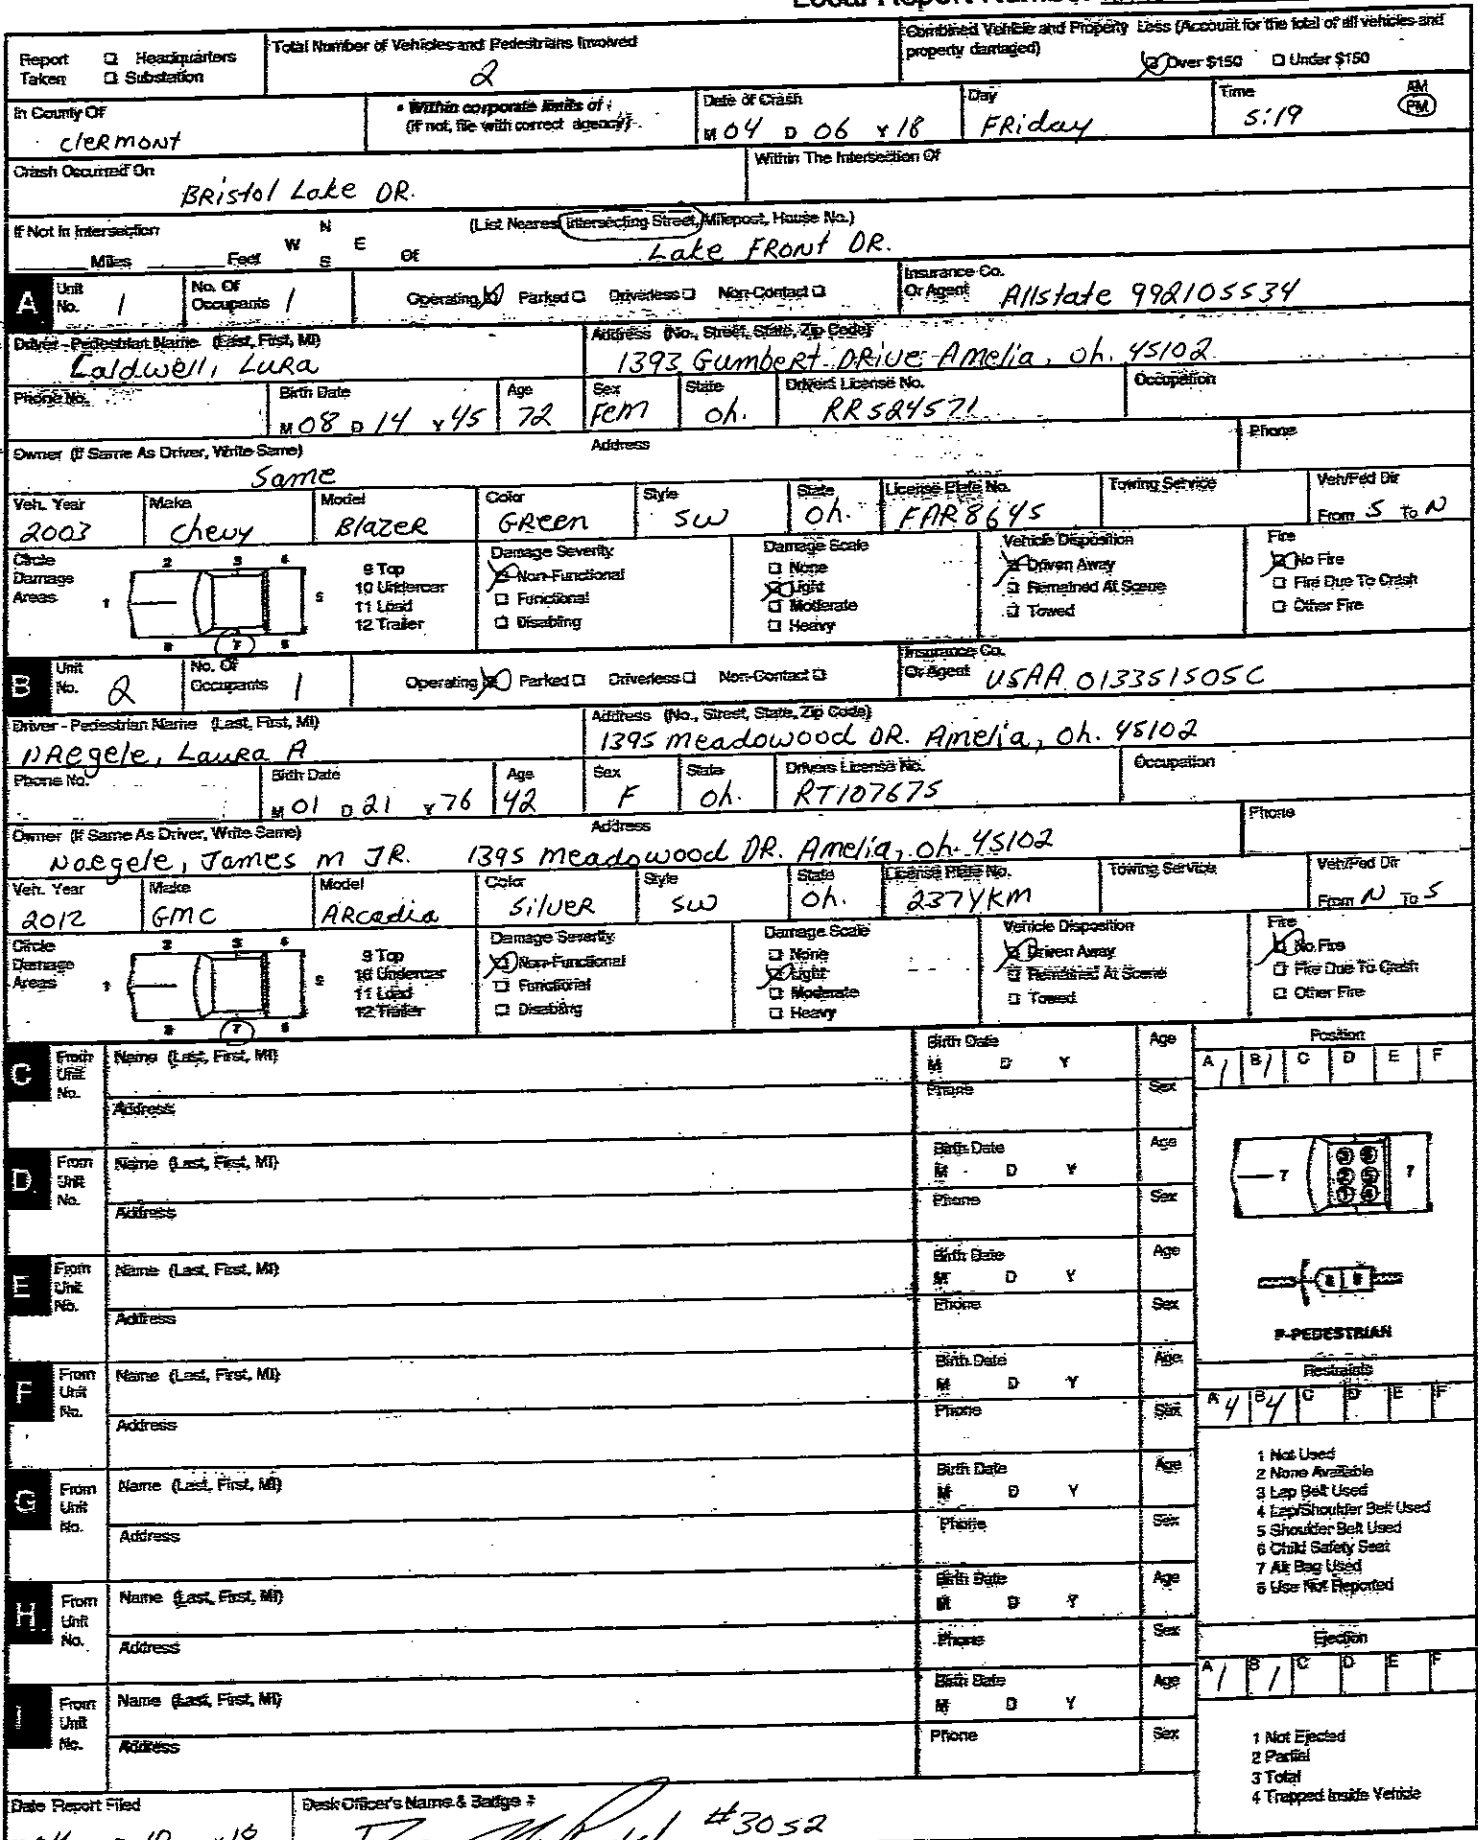 Local Report Number
Report Taken ☐ Headquarters ☐ Substation
Total Number of Vehicles and Pedestrians Involved
2
Combined Vehicle and Property Loss (Account for the total of all vehicles and property damaged)
☒ Over $150 ☐ Under $150
In County Of
Clermont
• Within corporate limits of :
(If not, file with correct agency)
Date of Crash
M 04 D 06 Y 18
Day
Friday
Time
5:19
AM
PM
Crash Occurred On
Bristol Lake DR.
Within The Intersection Of
If Not In Intersection
Miles Feet N W E S Of
(List Nearest Intersecting Street, Milepost, House No.)
Lake Front DR.
A Unit No. 1
No. Of Occupants 1
Operating ☒ Parked ☐ Driverless ☐ Non-Contact ☐
Insurance Co. Or Agent Allstate 992105534
Driver - Pedestrian Name (Last, First, MI)
Caldwell, Lura
Address (No., Street, State, Zip Code)
1393 Gumbert Drive Amelia, oh. 45102
Phone No.
Birth Date
M 08 D 14 Y 45
Age
72
Sex
Fem
State
oh.
Drivers License No.
RR524571
Occupation
Owner (If Same As Driver, Write Same)
Same
Address
Phone
Veh. Year
2003
Make
Chevy
Model
Blazer
Color
Green
Style
SW
State
oh.
License Plate No.
FAR8645
Towing Service
Veh/Ped Dir
From S To N
Circle Damage Areas
1 2 3 4 5 6 7 8
9 Top
10 Undercar
11 Load
12 Trailer
Damage Severity
☒ Non-Functional
☐ Functional
☐ Disabling
Damage Scale
☐ None
☒ Light
☐ Moderate
☐ Heavy
Vehicle Disposition
☒ Driven Away
☐ Remained At Scene
☐ Towed
Fire
☒ No Fire
☐ Fire Due To Crash
☐ Other Fire
B Unit No. 2
No. Of Occupants 1
Operating ☒ Parked ☐ Driverless ☐ Non-Contact ☐
Insurance Co. Or Agent USAA 013351505C
Driver - Pedestrian Name (Last, First, MI)
Naegele, Laura A
Address (No., Street, State, Zip Code)
1395 Meadowood DR. Amelia, oh. 45102
Phone No.
Birth Date
M 01 D 21 Y 76
Age
42
Sex
F
State
oh.
Drivers License No.
RT107675
Occupation
Owner (If Same As Driver, Write Same)
Naegele, James M JR.
Address
1395 Meadowood DR. Amelia, oh. 45102
Phone
Veh. Year
2012
Make
GMC
Model
Arcadia
Color
Silver
Style
SW
State
oh.
License Plate No.
237YKM
Towing Service
Veh/Ped Dir
From N To S
Circle Damage Areas
1 2 3 4 5 6 7 8
9 Top
10 Undercar
11 Load
12 Trailer
Damage Severity
☒ Non-Functional
☐ Functional
☐ Disabling
Damage Scale
☐ None
☒ Light
☐ Moderate
☐ Heavy
Vehicle Disposition
☒ Driven Away
☐ Remained At Scene
☐ Towed
Fire
☒ No Fire
☐ Fire Due To Crash
☐ Other Fire
C From Unit No. Name (Last, First, MI) Birth Date M D Y Age
Address Phone Sex
D From Unit No. Name (Last, First, MI) Birth Date M D Y Age
Address Phone Sex
E From Unit No. Name (Last, First, MI) Birth Date M D Y Age
Address Phone Sex
F From Unit No. Name (Last, First, MI) Birth Date M D Y Age
Address Phone Sex
G From Unit No. Name (Last, First, MI) Birth Date M D Y Age
Address Phone Sex
H From Unit No. Name (Last, First, MI) Birth Date M D Y Age
Address Phone Sex
I From Unit No. Name (Last, First, MI) Birth Date M D Y Age
Address Phone Sex
Position
A 1 B 1 C D E F
7 7
P-PEDESTRIAN
Restraints
A 4 B 4 C D E F
1 Not Used
2 None Available
3 Lap Belt Used
4 Lap/Shoulder Belt Used
5 Shoulder Belt Used
6 Child Safety Seat
7 Air Bag Used
8 Use Not Reported
Ejection
A 1 B 1 C D E F
1 Not Ejected
2 Partial
3 Total
4 Trapped Inside Vehicle
Date Report Filed
Desk Officer's Name & Badge #
#3052